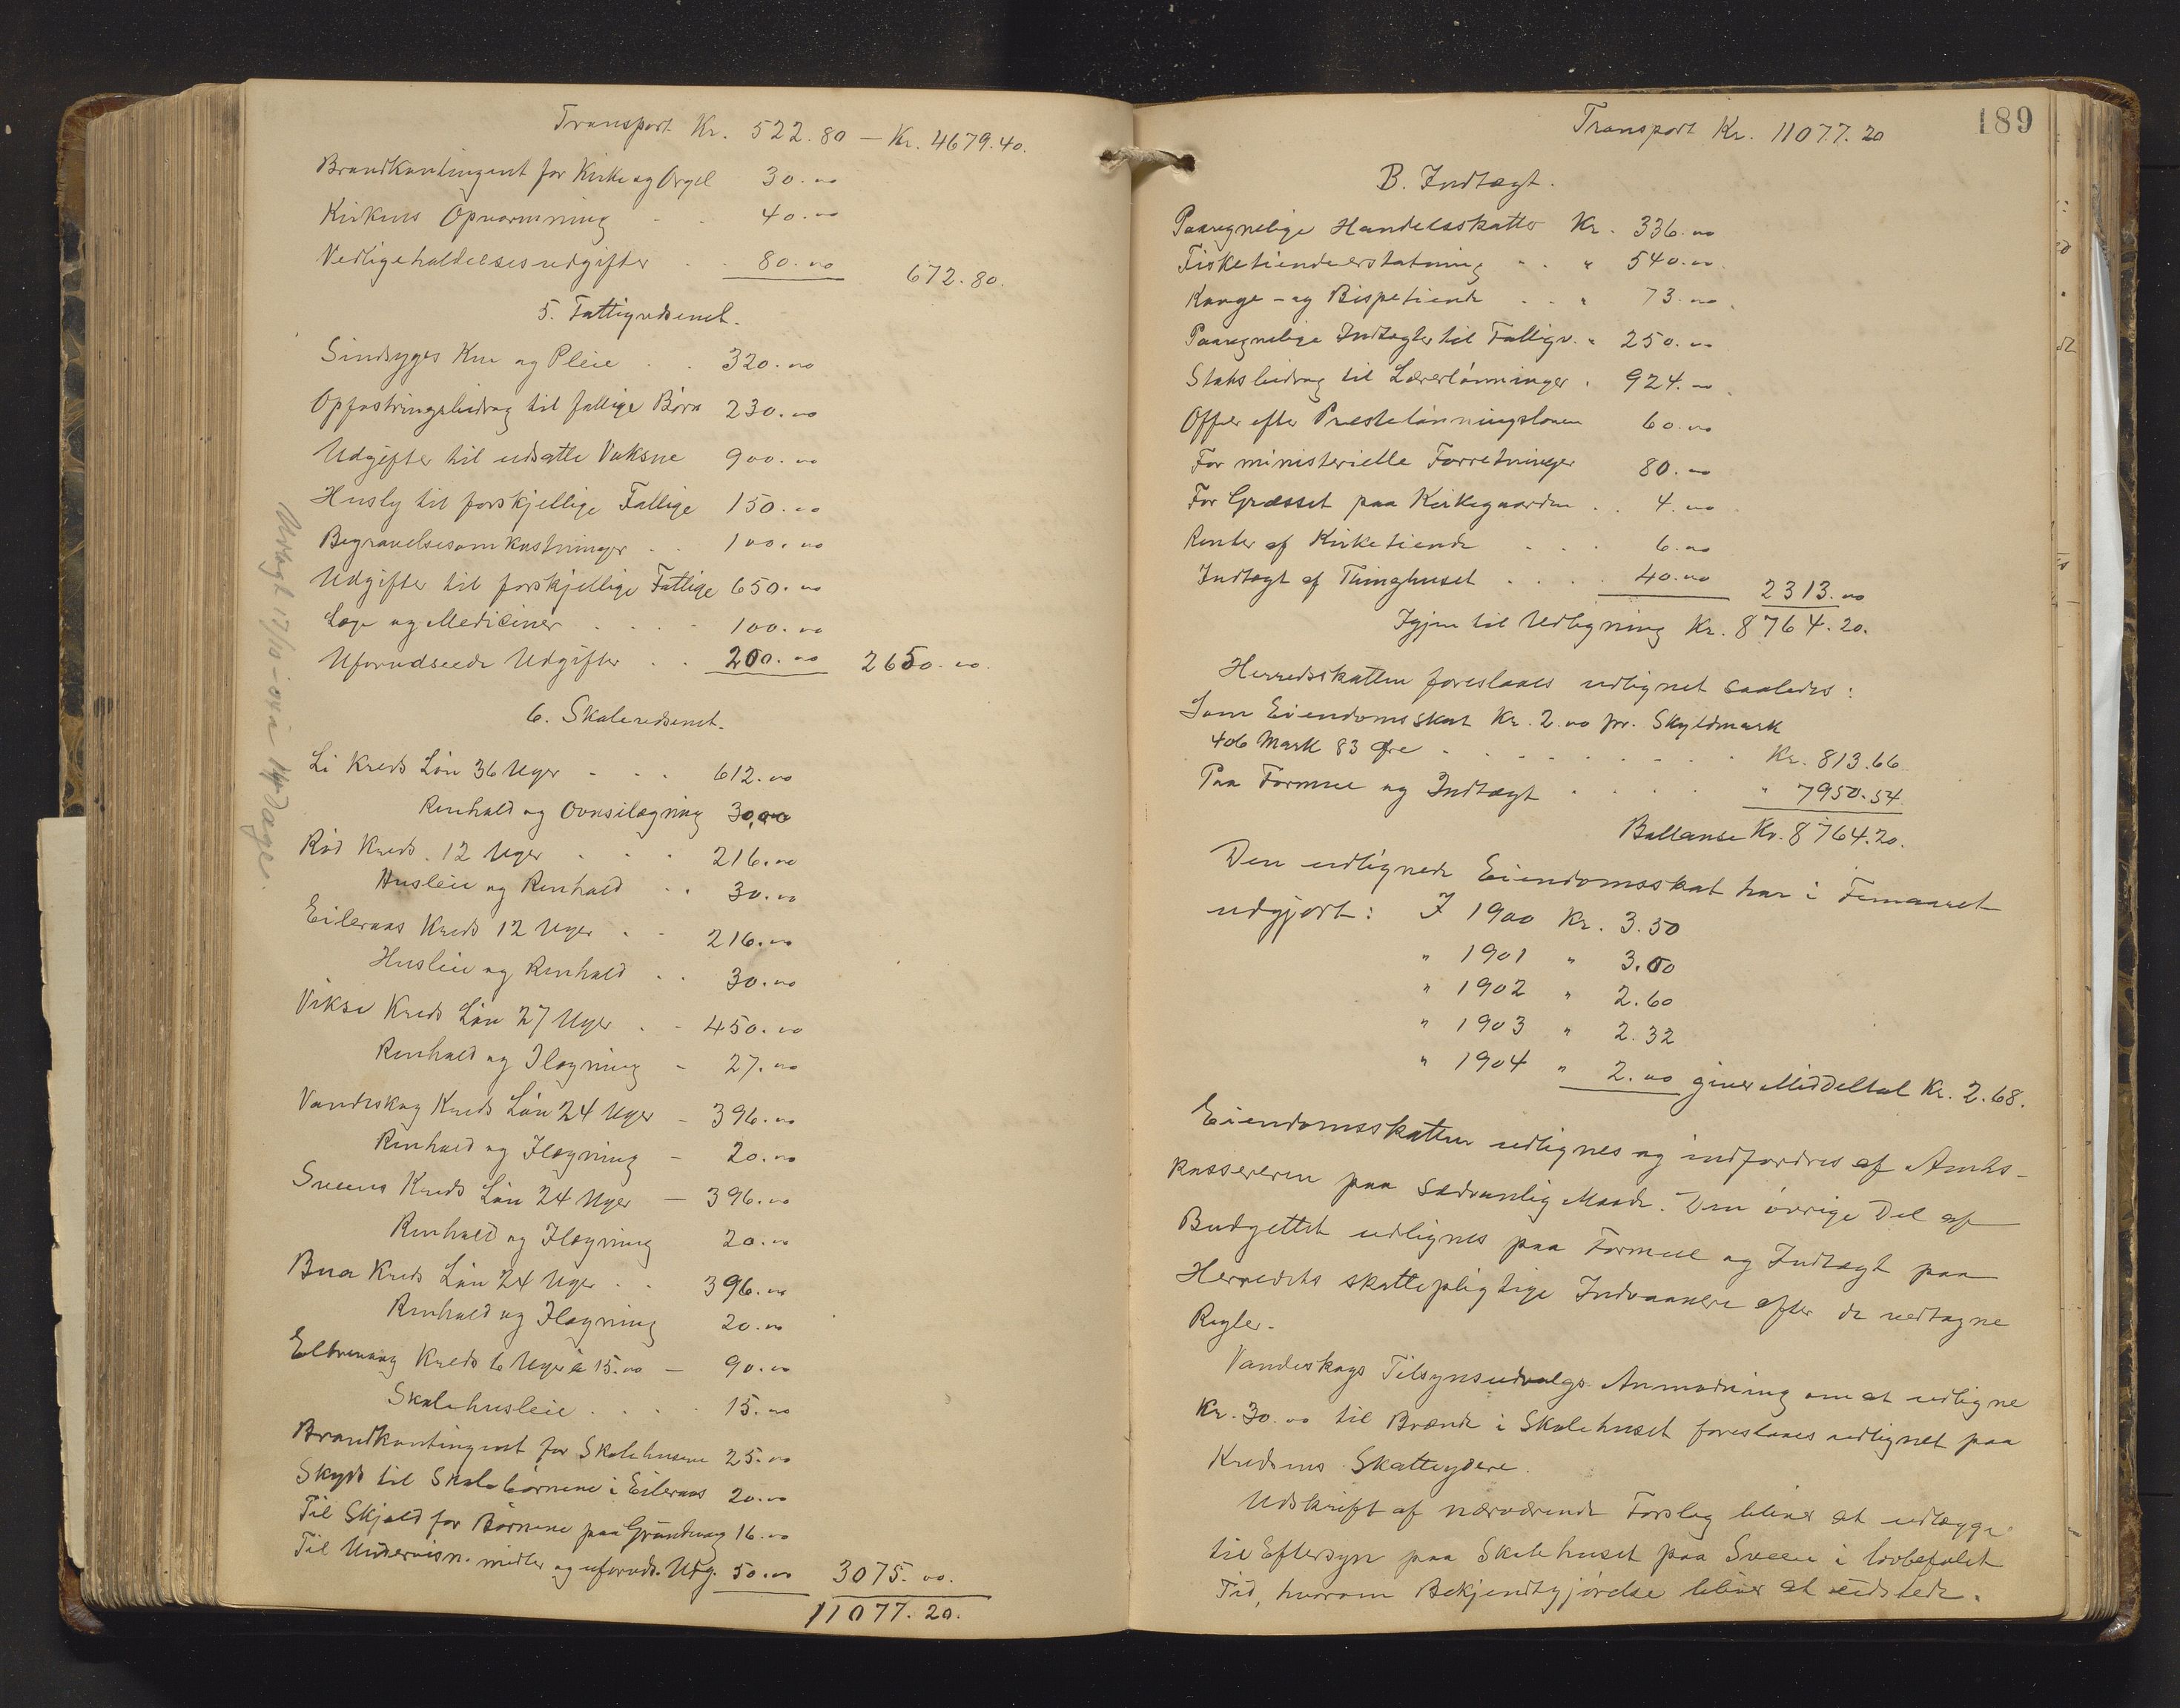 Transport Kr. 522.80 — Kr. 4679.40.
Brandkontingent for Kirke og Orgel 30.00
Kirkens Opvarmning - - 40.00
Vedligeholdelsesudgifter - - 80.00 672.80.
5. Fattigvæsenet.
Sindsyges Kur og Pleie . . 320.00
Opfostringsbidrag til fattige Børn 230.00
Udgifter til udsatte Voksne 900.00
Husly til forskjellige Fattige 150.00
Begravelsesomkostninger . . 100.00
Udgifter til forskjellige Fattige 650.00
Læge og Mediciner . . . . 100.00
Uforudseede Udgifter . . 200.00 2650.00.
6. Skolevæsenet.
Li Kreds Løn 36 Uger - . . 612.00
Renhold og Ovnsilægning 30,00
Rød Kreds. 12 Uger . . . 216.00
Husleie og Renhold . . 30.00
Eileraas Kreds 12 Uger . . 216.00
Husleie og Renhold . . 30.00
Vikse Kreds Løn 27 Uger . - 450.00
Renhold og Ilægning - 27.00
Vandeskog Kreds Løn 24 Uger - 396.00
Renhold og Ilægning - 20.00
Sveens Kreds Løn 24 Uger — 396.00
Renhold og Ilægning 20.00
Bua Kreds Løn 24 Uger . . 396.00
Renhold og Ilægning 20.00
Kreds 6 Uger à 15.00 — 90.00
Skolehusleie . . . . 15.00
Brandkontingent for Skolehusene 25.00
Skyds til Skolebørnene i Eileraas 20.00
Til Skjold for Børnene paa 16.00
Til Undervisn.midler og uforuds. Udg. 50.00 3075.00.
11077.20.
Udlagt 17/10 - i 14 Dage.
189
Transport Kr. 11077.20
B. Indtægt.
Paaregnelige Handelsskatte Kr. 336.00
Fisketiendeerstatning - . " 540.00
Konge- og Bispetiende . . " 73.00
Paaregnelige Indtægter til Fattigv. " 250.00
Statsbidrag til Lærerlønninger . 924.00
Offer efter Prestelønningsloven 60.00
For ministerielle Forretninger 80.00
For Græsset paa Kirkegaarden . . 4.00
Renter af Kirketiende . . . 6.00
Indtægt af Thinghuset . . . . 40.00 2313.00
Igjen til Udligning Kr. 8764.20.
Herredsskatten foreslaaes udlignet saaledes:
Som Eiendomsskat Kr. 2.00 pr. Skyldmark
406 Mark 83 Øre . . . . . . . . Kr. 813.66
Paa Formue og Indtægt . . . . " 7950.54
Ballanse Kr. 8764.20.
Den udlignede Eiendomsskat har i Femaaret
udgjort: I 1900 Kr. 3.50
" 1901 " 3.00
" 1902 " 2.60
" 1903 " 2.32
" 1904 " 2.00 giver Middeltal Kr. 2.68.
Eiendomsskatten udlignes og indfordres af Amts-
kassereren paa sædvanlig Maade. Den øvrige Del af
Budgettet udlignes paa Formue og Indtægt paa
Herredets skattepligtige Indvaanere efter de vedtagne
Regler.
Vandeskogs Tilsynsudvalgs Anmodning om at udligne
Kr. 30.00 til Brænde i Skolehuset foreslaaes udlignet paa
Kredsens Skatteydere.
Udskrift af nærværende Forslag bliver at udlægge
til Eftersyn paa Skolehuset paa Sveen i lovbefalet
Tid, hvorom Bekjendtgjørelse bliver at udstede.